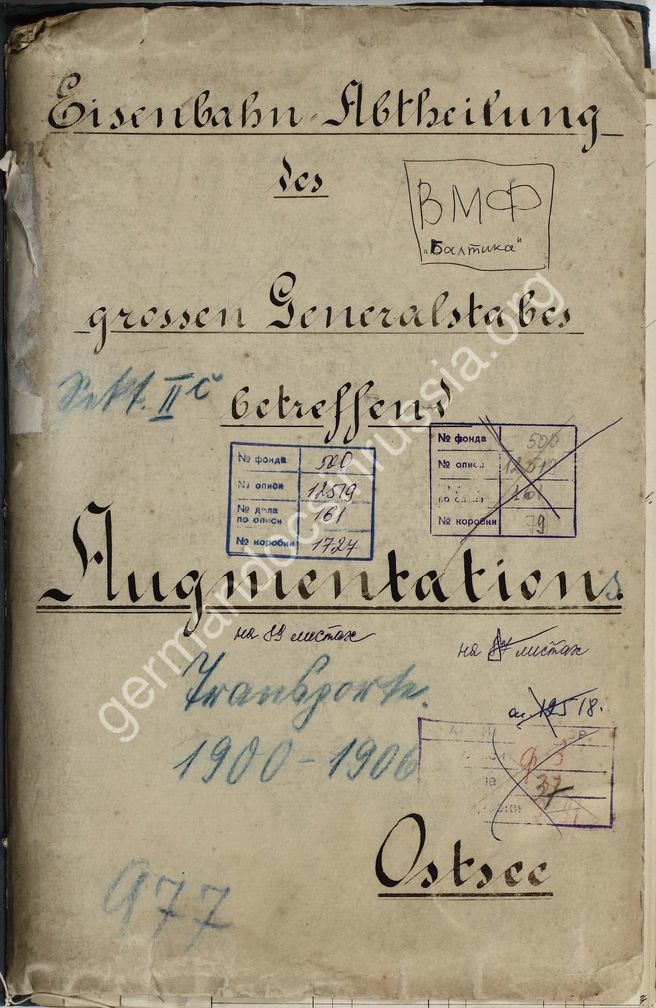 Eisenbahn-Abtheilung
des
ВМФ
„Балтика“
grossen Generalstabes
Sekt. IIc
betreffend
№ фонда 500
№ описи 12519
№ дела по описи 161
№ коробки 1724
№ фонда 500
№ описи 12519
по описи 161
№ коробки 79
Augmentations
на 89 листах
на листах
Transporte.
1900-1906
оп. 12518.
ф 5
37
Ostsee
977
germandocsinrussia.org